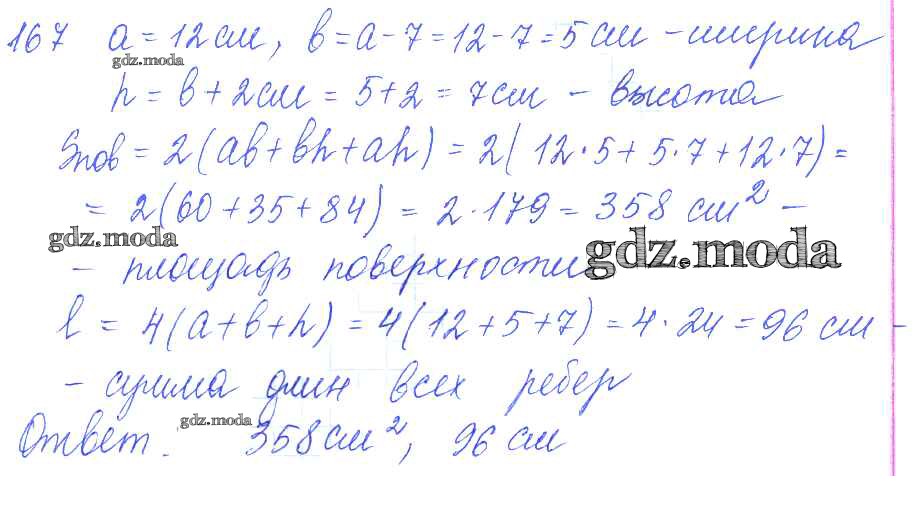 167 a = 12 см, b = a - 7 = 12 - 7 = 5 см - ширина
gdz.moda
h = b + 2 см = 5 + 2 = 7 см - высота
Sпов = 2(ab + bh + ah) = 2(12·5 + 5·7 + 12·7) =
= 2(60 + 35 + 84) = 2·179 = 358 см² -
gdz.moda
- площадь поверхности
gdz.moda
l = 4(a + b + h) = 4(12 + 5 + 7) = 4·24 = 96 см -
- сумма длин всех ребер
gdz.moda
Ответ. 358 см², 96 см